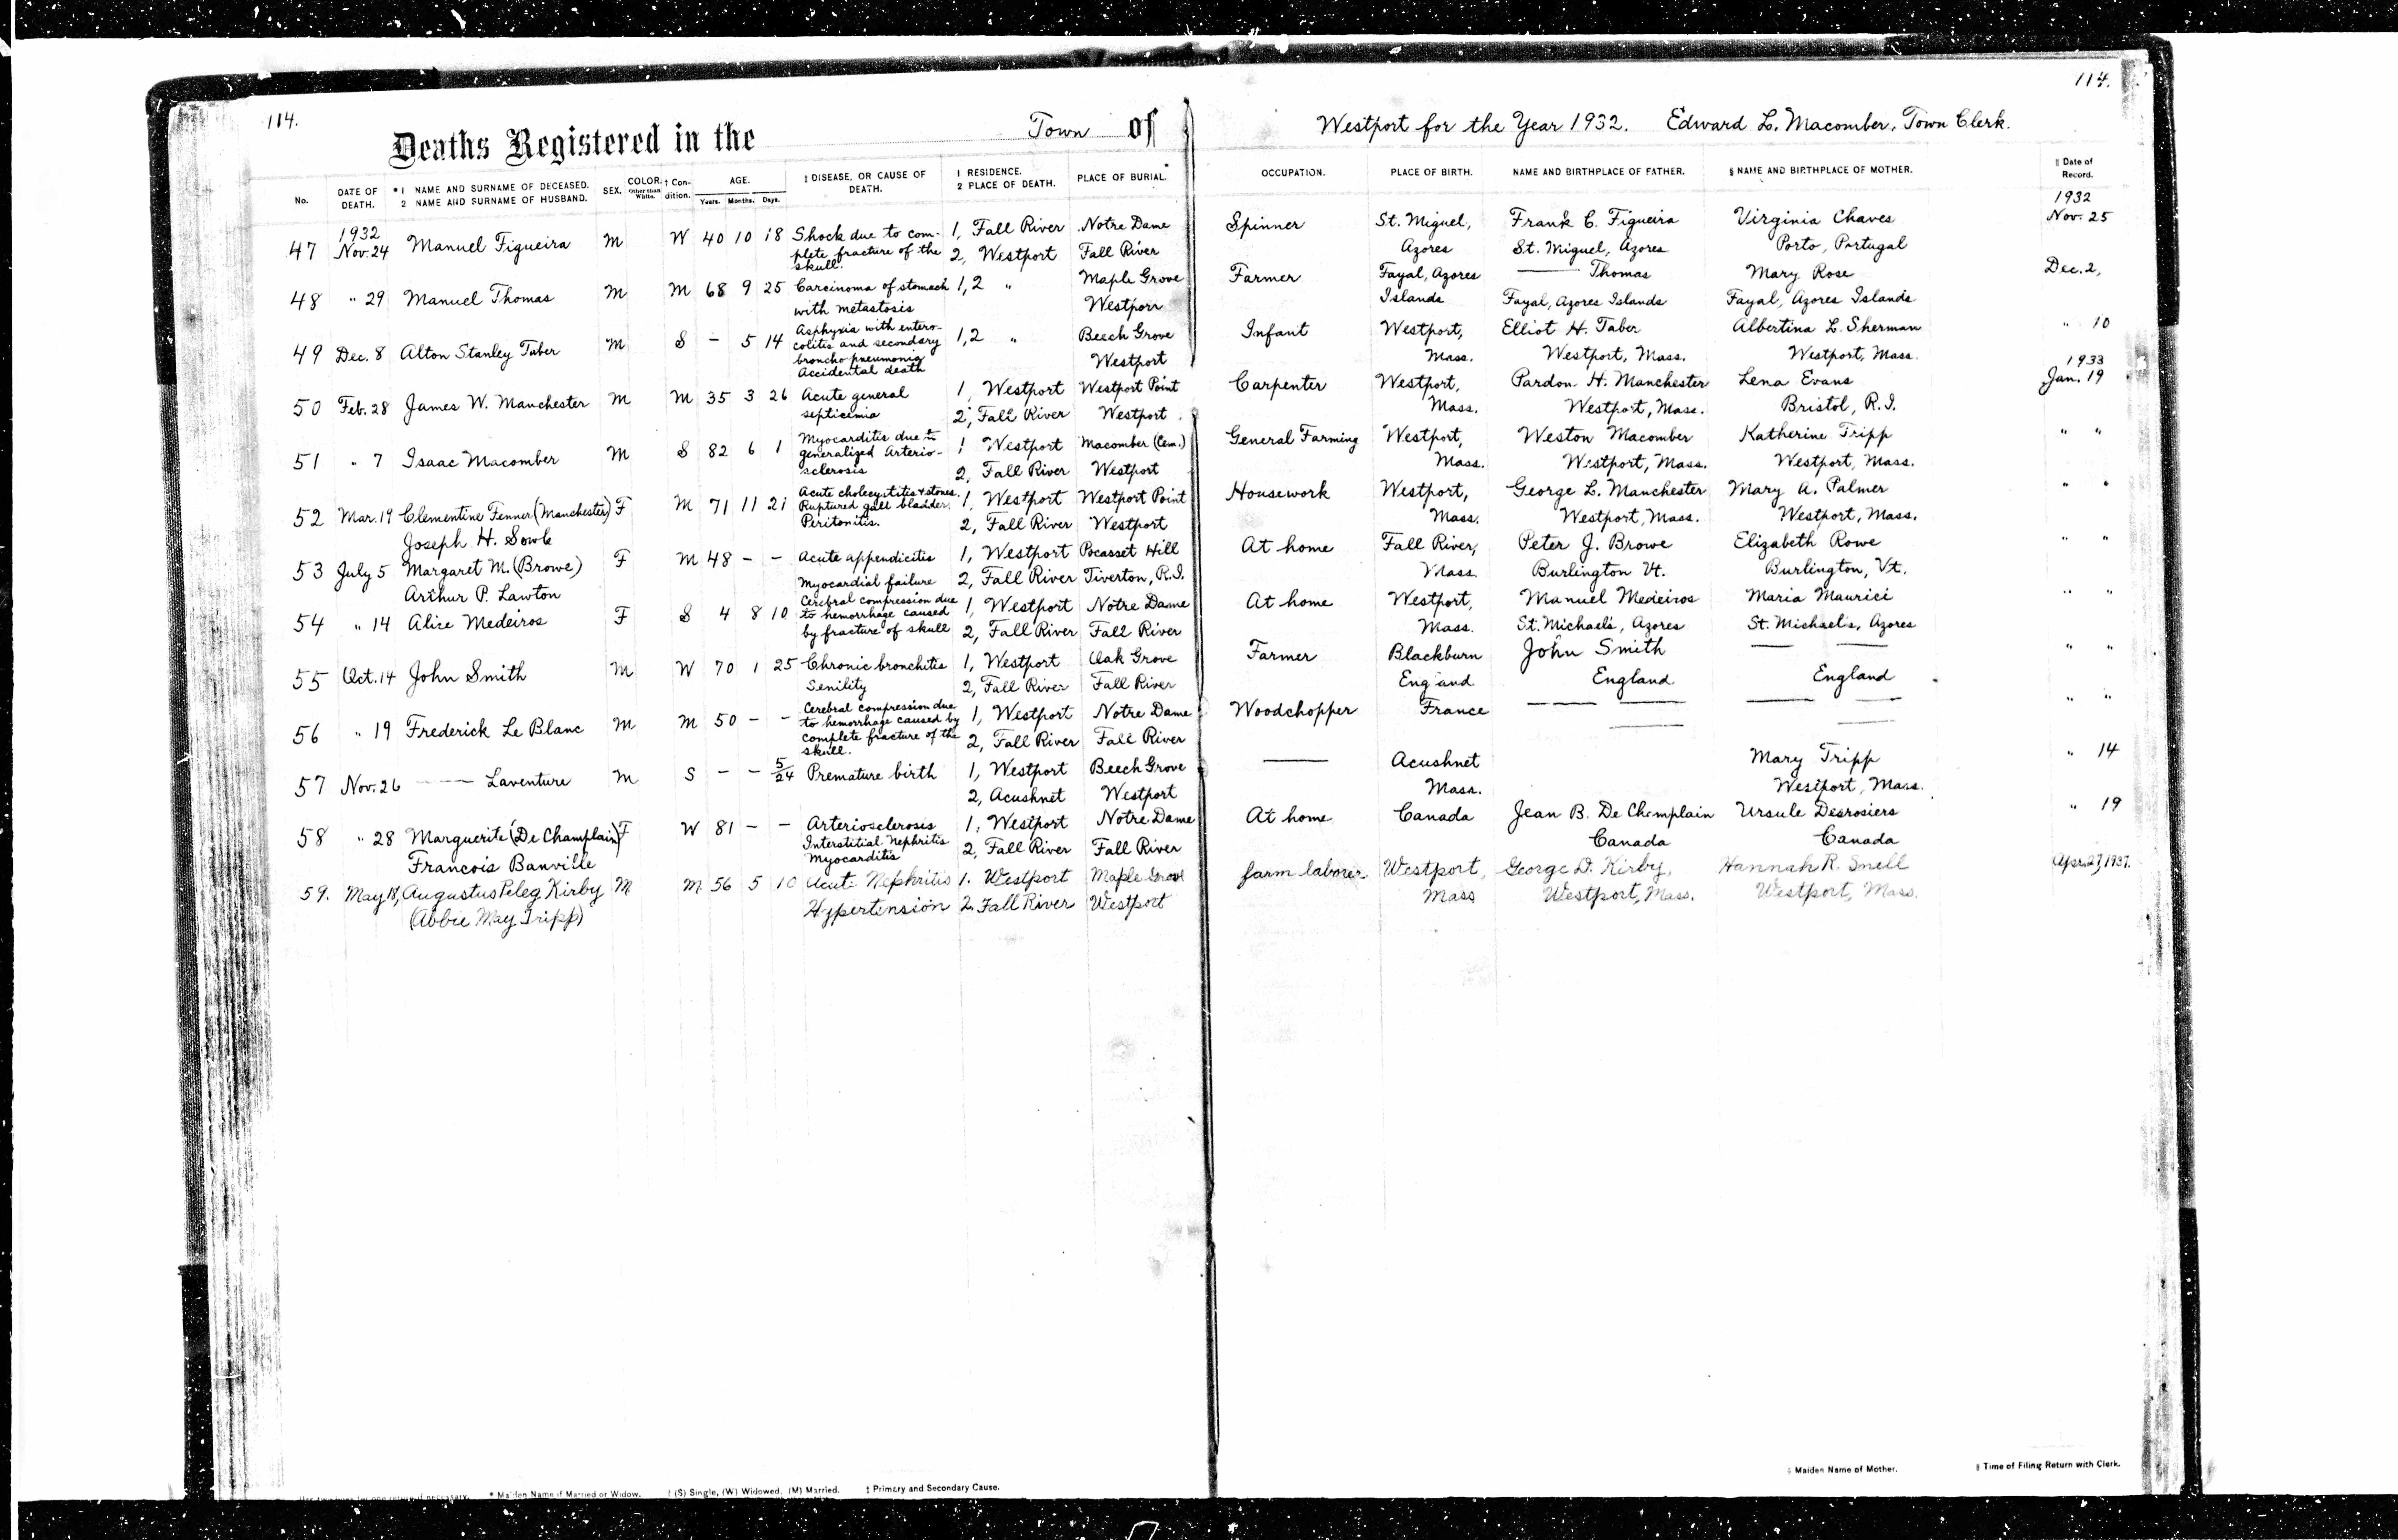 114.
114.
Deaths Registered in the Town of Westport for the Year 1932. Edward L. Macomber, Town Clerk.
No. DATE OF DEATH. *1 NAME AND SURNAME OF DECEASED. 2 NAME AND SURNAME OF HUSBAND. SEX. COLOR. Other than White. † Condition. AGE. Years. Months. Days. ‡ DISEASE, OR CAUSE OF DEATH. 1 RESIDENCE. 2 PLACE OF DEATH. PLACE OF BURIAL. OCCUPATION. PLACE OF BIRTH. NAME AND BIRTHPLACE OF FATHER. § NAME AND BIRTHPLACE OF MOTHER. ‖ Date of Record.
47 1932 Nov. 24 Manuel Figueira M W 40 10 18 Shock due to complete fracture of the skull. 1, Fall River 2, Westport Notre Dame Fall River Spinner St. Miguel, Azores Frank C. Figueira St. Miguel, Azores Virginia Chaves Porto, Portugal 1932 Nov. 25
48 " 29 Manuel Thomas M M 68 9 25 Carcinoma of stomach with metastosis 1,2 " Maple Grove Westport Farmer Fayal, Azores Islands —— Thomas Fayal, Azores Islands Mary Rose Fayal, Azores Islands Dec. 2,
49 Dec. 8 Alton Stanley Taber M S - 5 14 Asphyxia with entero-colitis and secondary broncho pneumonia Accidental death 1,2 " Beech Grove Westport Infant Westport, Mass. Elliot H. Taber Westport, Mass. Albertina L. Sherman Westport, Mass. " 10
50 Feb. 28 James W. Manchester M M 35 3 26 Acute general septicemia 1, Westport 2, Fall River Westport Point Westport Carpenter Westport, Mass. Pardon H. Manchester Westport, Mass. Lena Evans Bristol, R.I. 1933 Jan. 19
51 " 7 Isaac Macomber M S 82 6 1 Myocarditis due to generalized Arterio-sclerosis 1 Westport 2, Fall River Macomber (Cem.) Westport General Farming Westport, Mass. Weston Macomber Westport, Mass. Katherine Tripp Westport, Mass. " "
52 Mar. 19 Clementine Fenner (Manchester) Joseph H. Sowle F M 71 11 21 Acute cholecystitis & stones. Ruptured gall bladder. Peritonitis. 1, Westport 2, Fall River Westport Point Westport Housework Westport, Mass. George L. Manchester Westport, Mass. Mary A. Palmer Westport, Mass. " "
53 July 5 Margaret M. (Browe) Arthur P. Lawton F M 48 - - Acute appendicitis Myocardial failure 1, Westport 2, Fall River Pocasset Hill Tiverton, R.I. At home Fall River, Mass. Peter J. Browe Burlington Vt. Elizabeth Rowe Burlington, Vt. " "
54 " 14 Alice Medeiros F S 4 8 10 Cerebral compression due to hemorrhage caused by fracture of skull 1, Westport 2, Fall River Notre Dame Fall River At home Westport, Mass. Manuel Medeiros St. Michael's, Azores Maria Maurici St. Michael's, Azores " "
55 Oct. 14 John Smith M W 70 1 25 Chronic bronchitis Senility 1, Westport 2, Fall River Oak Grove Fall River Farmer Blackburn England John Smith England —— —— England " "
56 " 19 Frederick Le Blanc M M 50 - - Cerebral compression due to hemorrhage caused by complete fracture of the skull. 1, Westport 2, Fall River Notre Dame Fall River Woodchopper France —— —— —— —— —— —— " "
57 Nov. 26 —— Laventure M S - - 5/24 Premature birth 1, Westport 2, Acushnet Beech Grove Westport —— Acushnet Mass. Mary Tripp Westport, Mass. " 14
58 " 28 Marguerite (De Champlain) Francois Banville F W 81 - - Arteriosclerosis Interstitial Nephritis Myocarditis 1, Westport 2, Fall River Notre Dame Fall River At home Canada Jean B. De Champlain Canada Ursule Desrosiers Canada " 19
59. May 18, Augustus Peleg Kirby (Abbie May Tripp) M M 56 5 10 Acute Nephritis Hypertension 1. Westport 2. Fall River Maple Grove Westport farm laborer Westport, Mass George D. Kirby, Westport, Mass. Hannah R. Snell Westport, Mass. Apr. 27, 1937.
* Maiden Name if Married or Widow. † (S) Single, (W) Widowed, (M) Married. ‡ Primary and Secondary Cause. § Maiden Name of Mother. ‖ Time of Filing Return with Clerk.